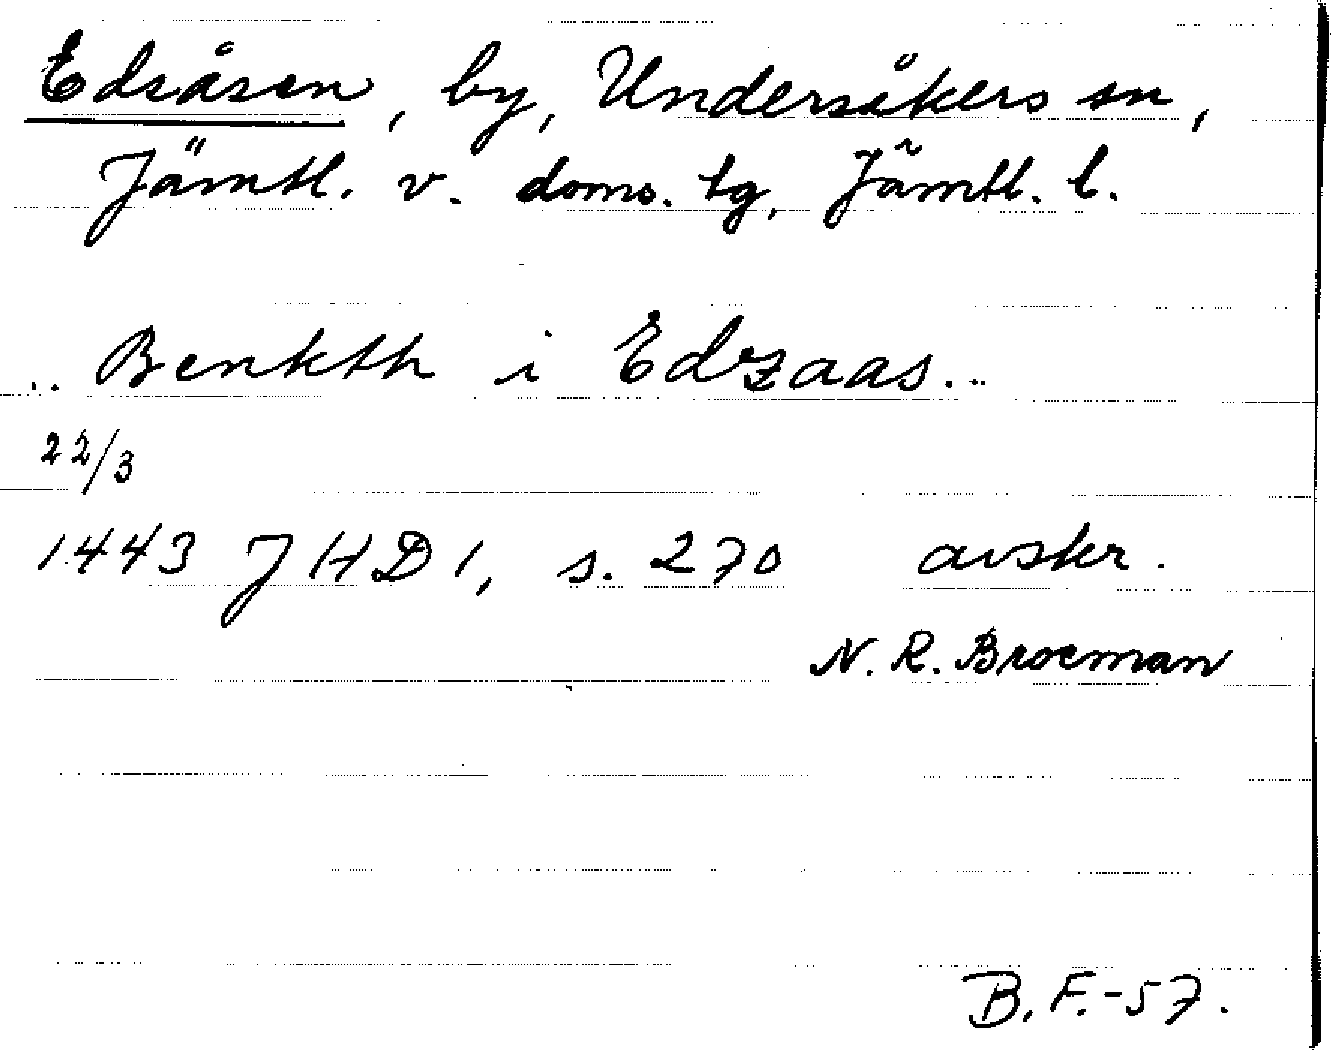 Edsåsen, by, Undersåkers sn,
Jämtl. v. doms. tg, Jämtl. l.
.. Benkth i Edzaas...
22/3
1443 JHD 1, s. 270 avskr.
N. R. Broeman
B. F. -57.